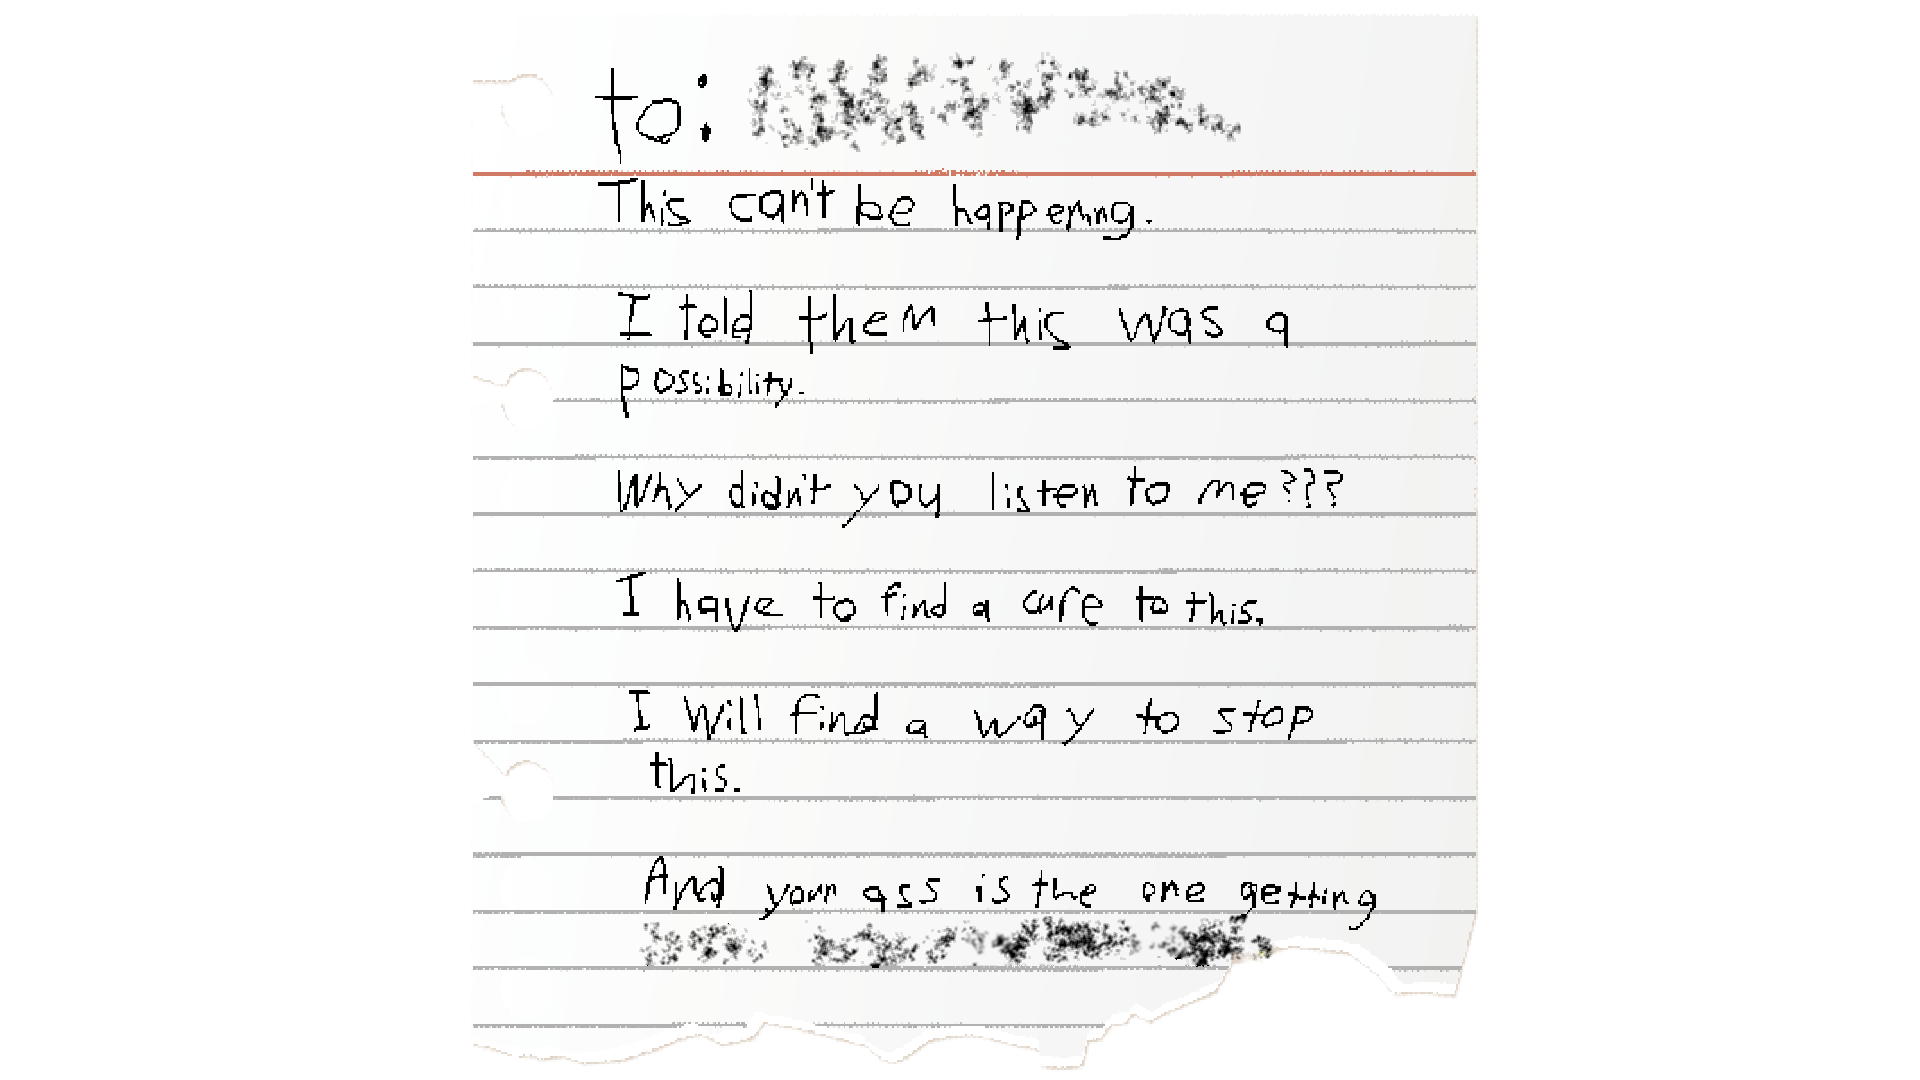 to:
This can't be happening.
I told them this was a
possibility.
Why didn't you listen to me???
I have to find a cure to this.
I will find a way to stop
this.
And your ass is the one getting